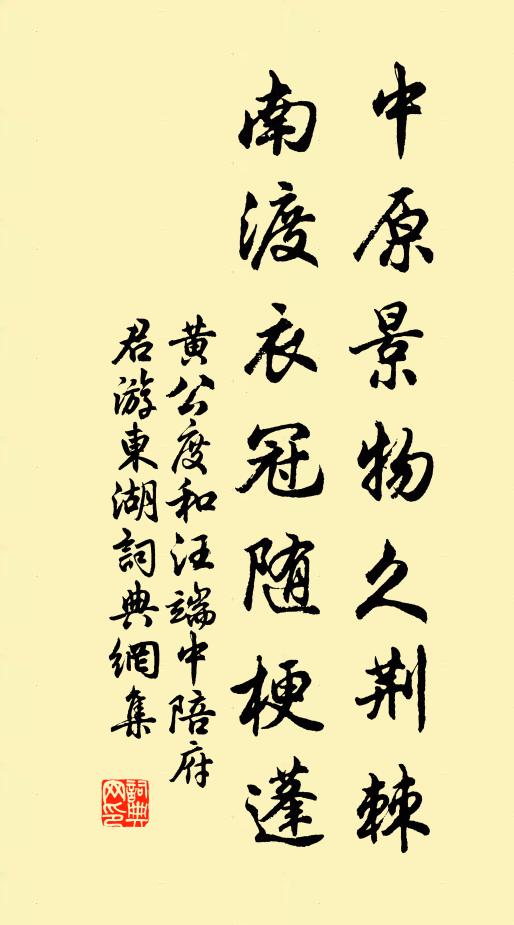 中原景物久荆棘
南渡衣冠随梗蓬
黄公度和汪端中陪府
君游東湖詞典網集
詞典网印